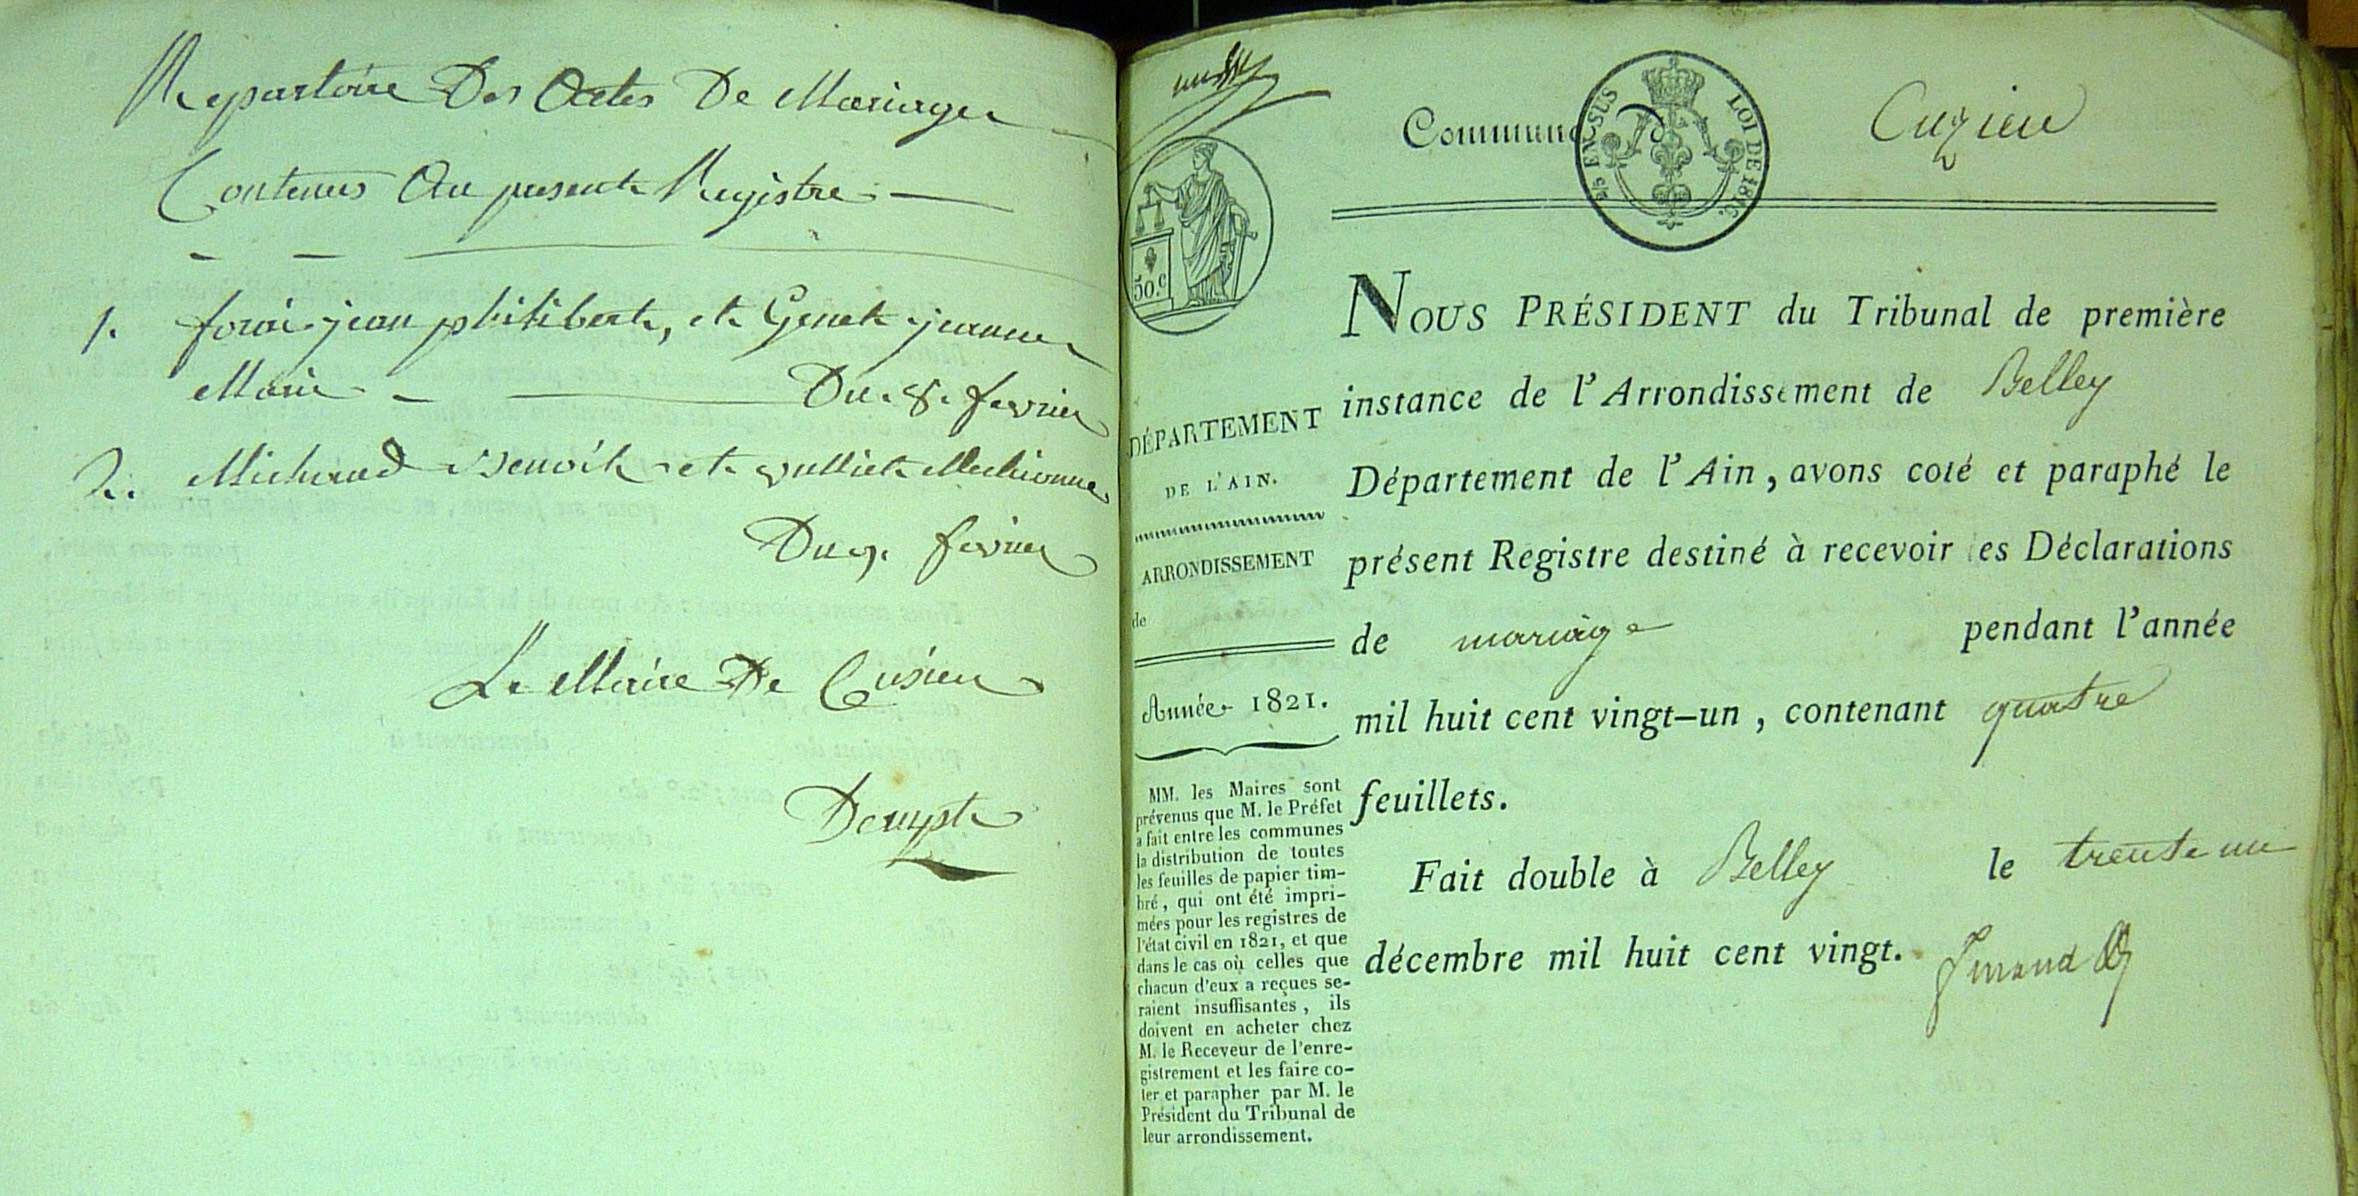 Repartoire Des Actes De Mariages
Contenus Au present Registre
1. forai jean philibert, et Genet jeanne
Marie Du 8. fevrier
2. Michaud Benoit et vulliet Mechionne
Du 9. fevrier
Le Maire De Cusieu
Commune De Cuzieu
5/8 EN SUS
LOI DE 1816.
50.C
DÉPARTEMENT
DE L'AIN.
ARRONDISSEMENT
de
Année 1821.
MM. les Maires sont
prévenus que M. le Préfet
a fait entre les communes
la distribution de toutes
les feuilles de papier tim-
bré, qui ont été impri-
mées pour les registres de
l'état civil en 1821, et que
dans le cas où celles que
chacun d'eux a reçues se-
raient insuffisantes, ils
doivent en acheter chez
M. le Receveur de l'enre-
gistrement et les faire co-
ter et parapher par M. le
Président du Tribunal de
leur arrondissement.
NOUS PRÉSIDENT du Tribunal de première
instance de l'Arrondissement de Belley
Département de l'Ain, avons coté et paraphé le
présent Registre destiné à recevoir les Déclarations
de mariage pendant l'année
mil huit cent vingt-un, contenant quatre
feuillets.
Fait double à Belley le trente un
décembre mil huit cent vingt.